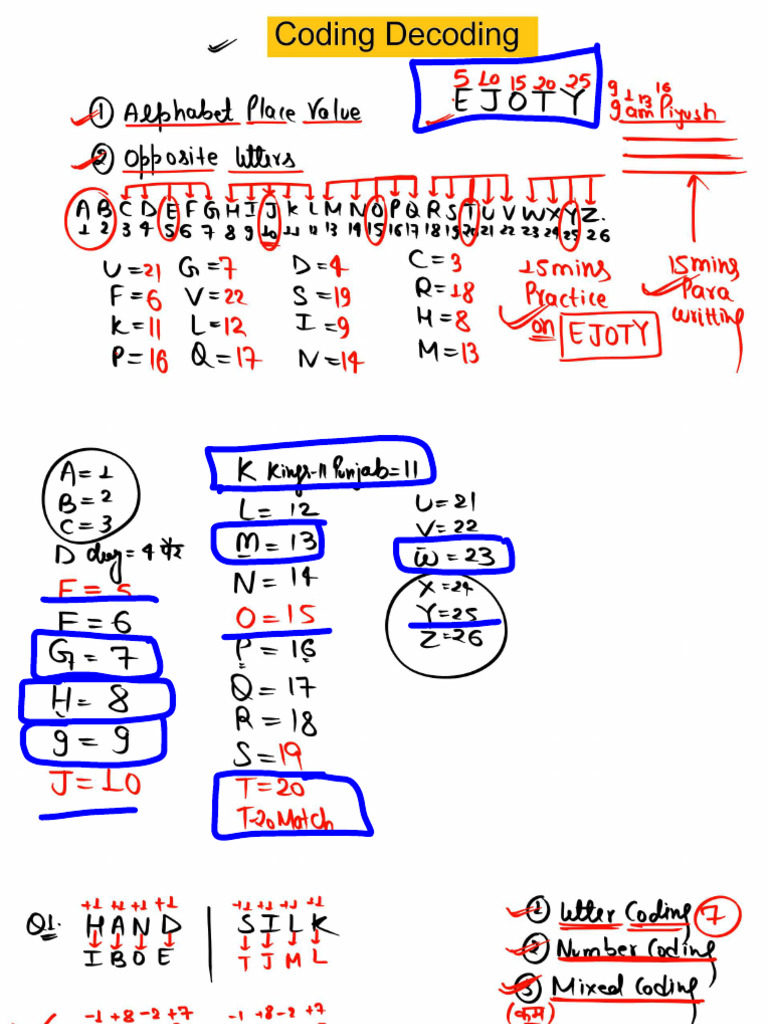 Coding Decoding
① Alphabet Place Value
5 10 15 20 25
E J O T Y
9 1 13 16
9 am Piyush
② Opposite letters
A B C D E F G H I J K L M N O P Q R S T U V W X Y Z.
1 2 3 4 5 6 7 8 9 10 11 12 13 14 15 16 17 18 19 20 21 22 23 24 25 26
U = 21 G = 7 D = 4 C = 3
F = 6 V = 22 S = 19 R = 18
K = 11 L = 12 I = 9 H = 8
P = 16 Q = 17 N = 14 M = 13
15 mins
Practice
on EJOTY
15 mins
Para
writting
A = 1
B = 2
C = 3
D = 4
E = 5
F = 6
G = 7
H = 8
9 = 9
J = 10
K Kings-11 Punjab = 11
L = 12
M = 13
N = 14
O = 15
P = 16
Q = 17
R = 18
S = 19
T = 20
T-20 Match
U = 21
V = 22
W = 23
X = 24
Y = 25
Z = 26
+1 +1 +1 +1
Q1. H A N D
I B O E
+1 +1 +1 +1
S I L K
T J M L
① Letter Coding 7
② Number Coding
③ Mixed Coding
(कम)
-1 +8 -2 +7
-1 +8 -2 +7